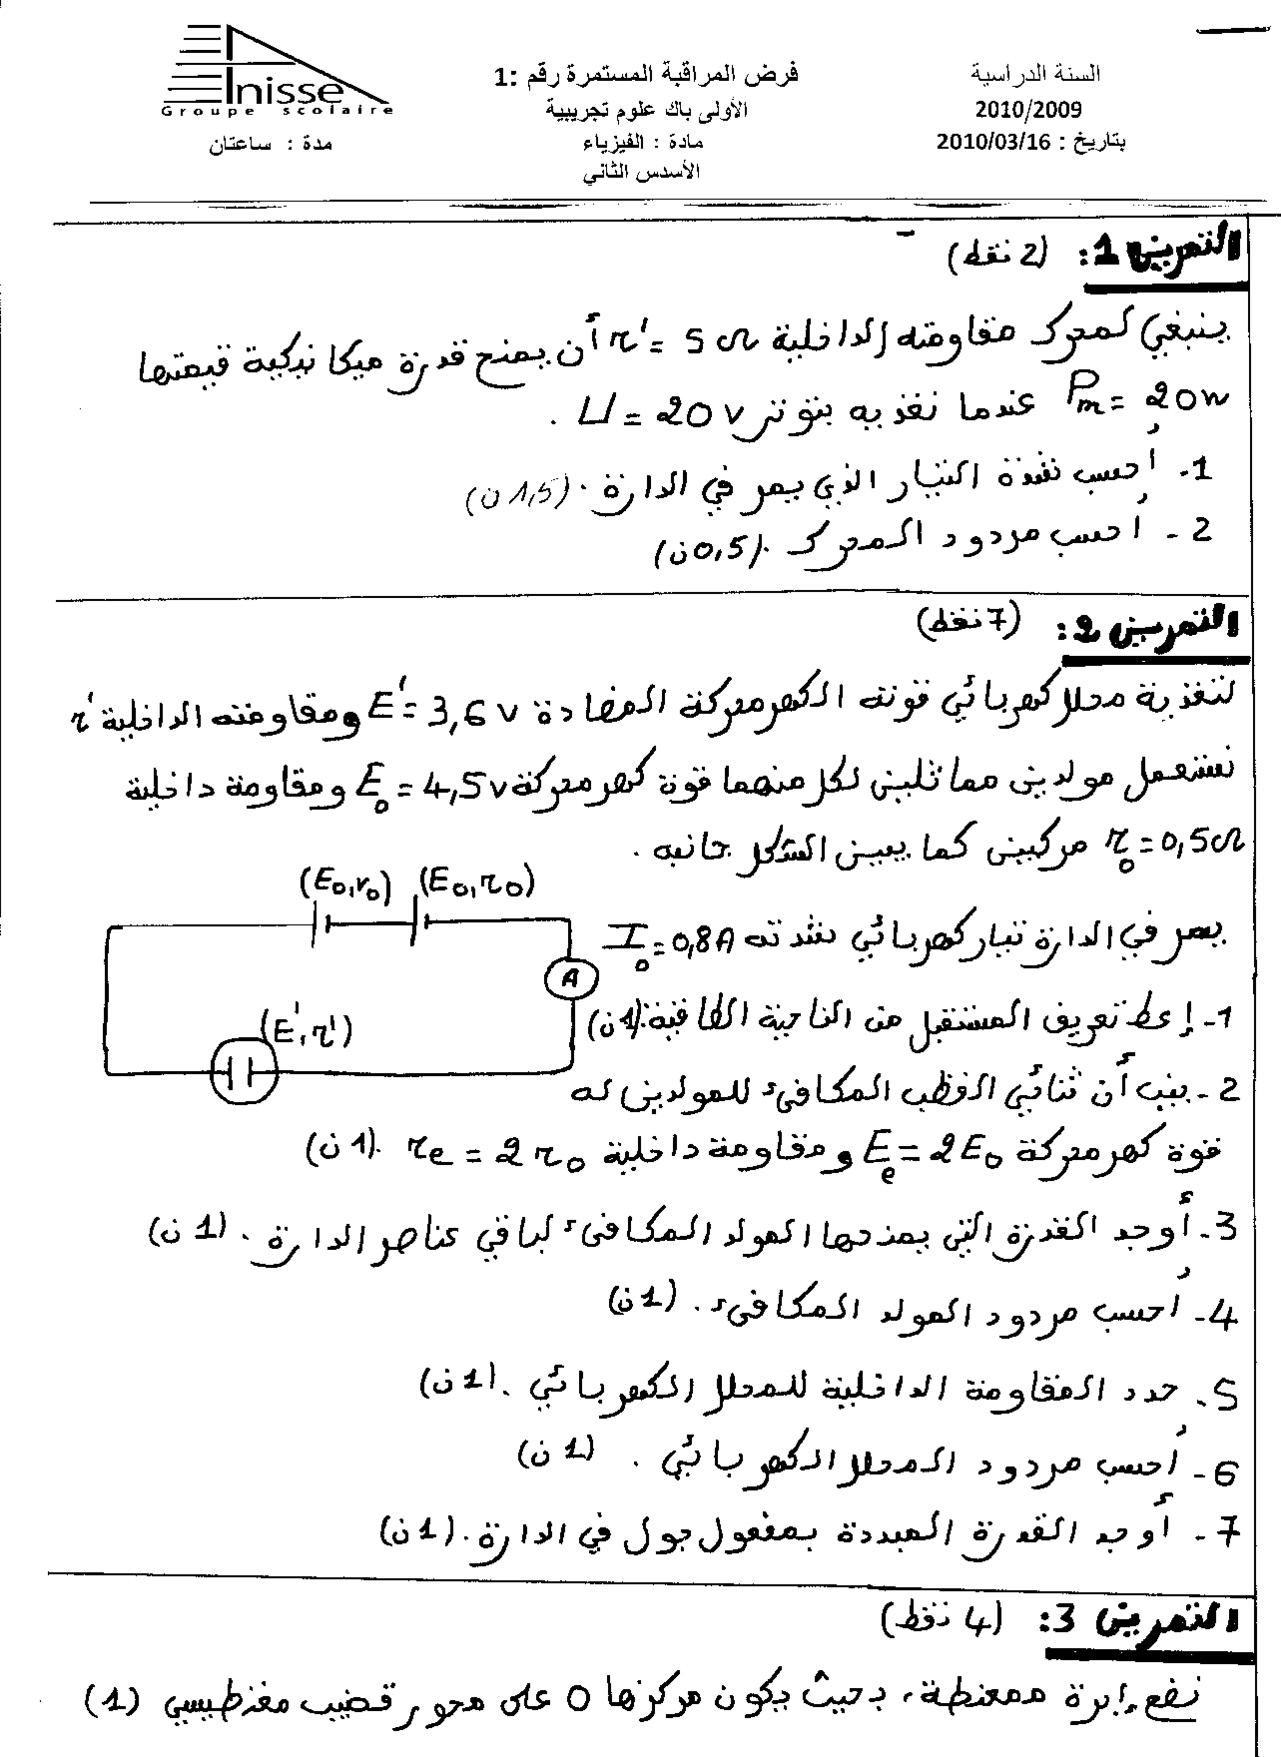 Anisse
Groupe scolaire
مدة : ساعتان
فرض المراقبة المستمرة رقم :1
الأولى باك علوم تجريبية
مادة : الفيزياء
الأسدس الثاني
السنة الدراسية
2010/2009
بتاريخ : 2010/03/16
التمرين 1: (2 نقط)
ينبغي لمحرك مقاومته الداخلية r' = 5 Ω أن يمنح قدرة ميكانيكية قيمتها
Pm = 20w عندما نغذيه بتوتر U = 20 v .
1- أحسب شدة التيار الذي يمر في الدارة . (1,5 ن)
2 - أحسب مردود المحرك . (0,5 ن)
التمرين 2: (7 نقط)
لتغذية محلل كهربائي قوته الكهرمحركة المضادة E' = 3,6 v ومقاومته الداخلية r'
نستعمل مولدين مماثلين لكل منهما قوة كهرمحركة E₀ = 4,5v ومقاومة داخلية
r₀ = 0,5Ω مركبين كما يبين الشكل جانبه .
يمر في الدارة تيار كهربائي شدته I₀ = 0,8A
1- إعط تعريف المستقبل من الناحية الطاقية. (1 ن)
2 - بين أن ثنائي القطب المكافئ للمولدين له
قوة كهرمحركة Ee = 2E₀ و مقاومة داخلية re = 2 r₀ . (1 ن)
3- أوجد القدرة التي يمنحها المولد المكافئ لباقي عناصر الدارة . (1 ن)
4- أحسب مردود المولد المكافئ . (1 ن)
5- حدد المقاومة الداخلية للمحلل الكهربائي . (1 ن)
6- أحسب مردود المحلل الكهربائي . (1 ن)
7- أوجد القدرة المبددة بمفعول جول في الدارة . (1 ن)
(E₀,r₀) (E₀,r₀)
A
(E',r')
التمرين 3: (4 نقط)
نضع إبرة ممغنطة، بحيث يكون مركزها O على محور قضيب مغنطيسي (1)